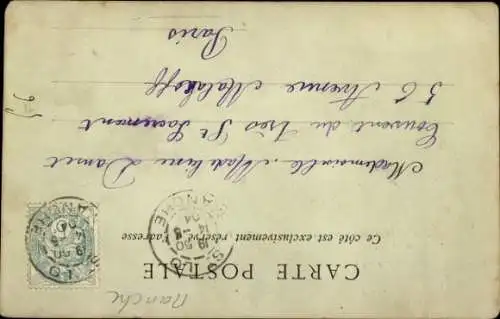 CARTE POSTALE
Ce côté est exclusivement réservé à l'adresse
Mademoiselle Madeleine Danet
Couvent du Très St Sacrement
36 Avenue Malakoff
Paris
ST LO
MANCHE
04
Manche